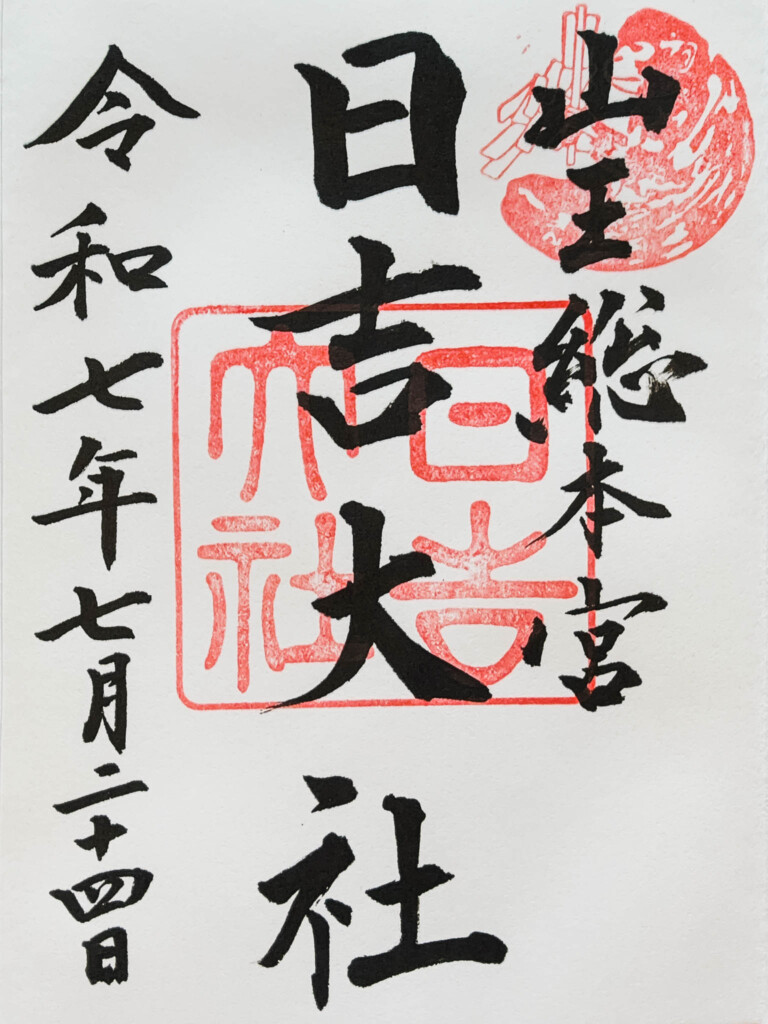 山王総本宮
日吉大社
日吉大社
令和七年七月二十四日